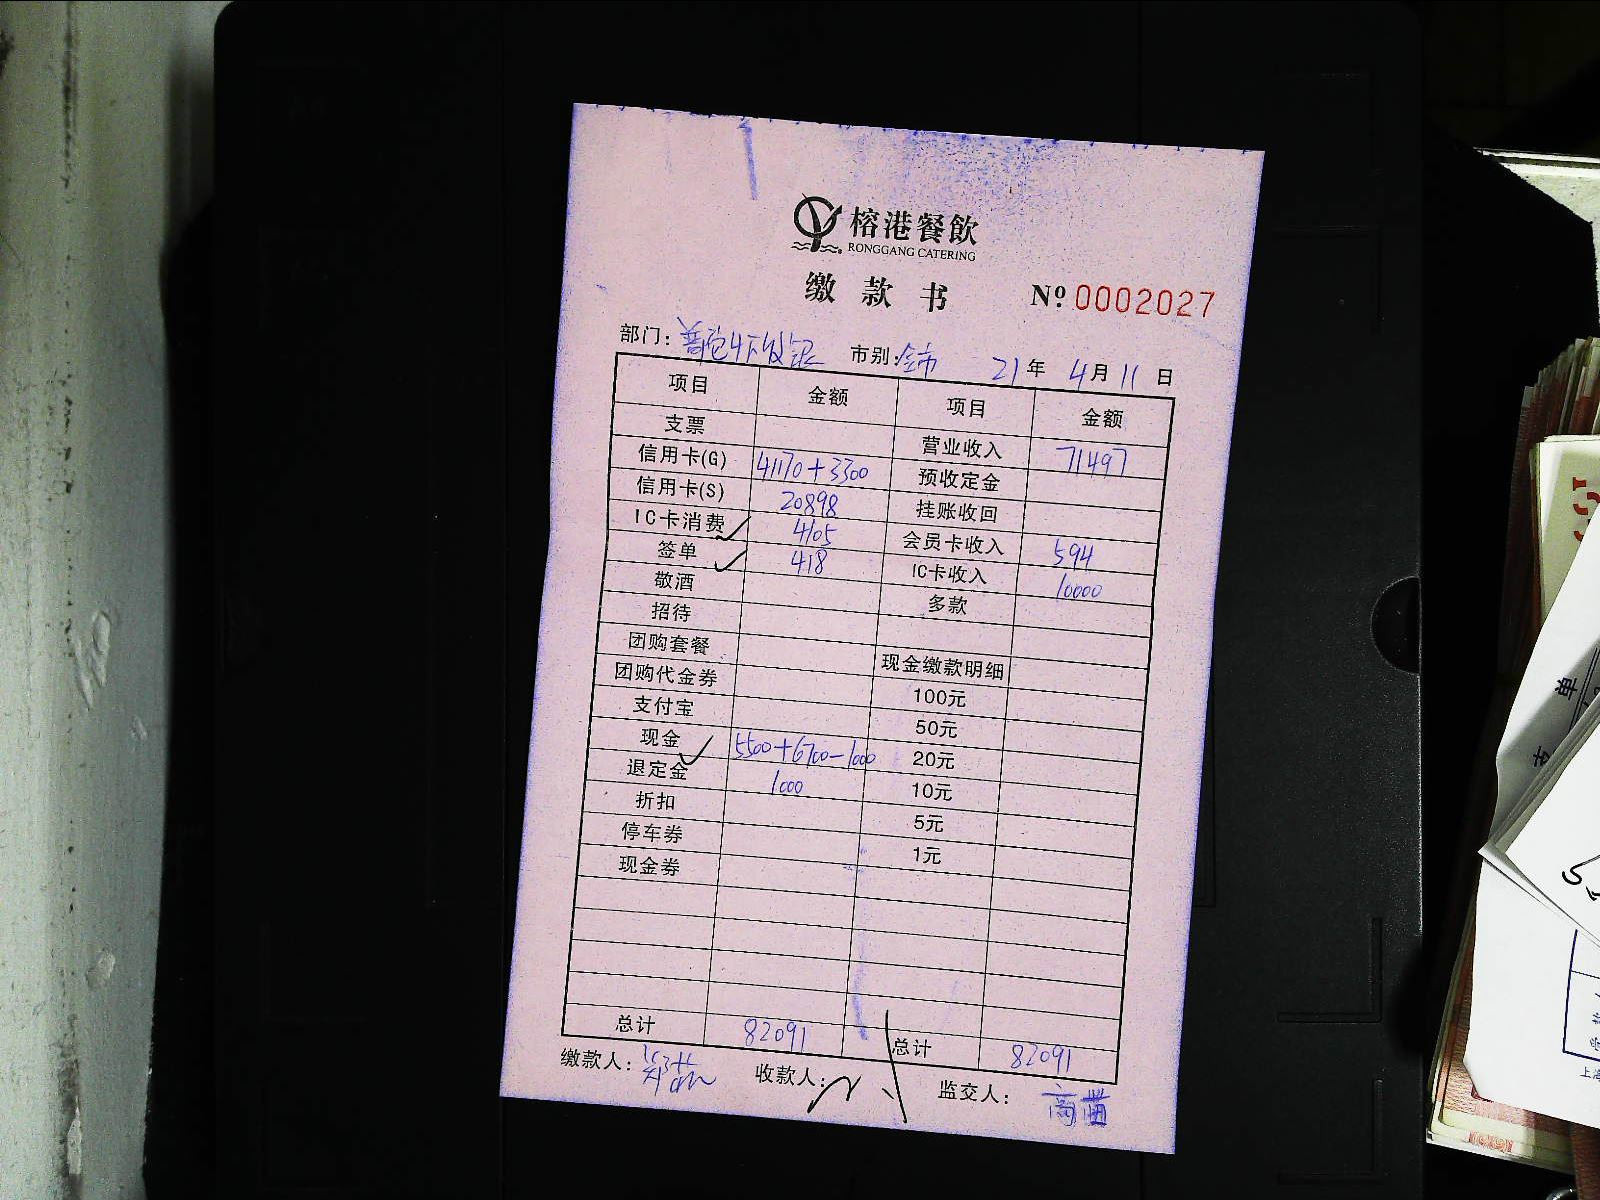 榕港餐飲
RONGGANG CATERING
缴款书 Nº 0002027
部门: 市别: 全市 21年 4月 11日
项目 金额 项目 金额
支票 营业收入 71497
信用卡(G) 41170+3300 预收定金
信用卡(S) 20898 挂账收回
IC卡消费 4105 会员卡收入 594
签单 418 IC卡收入 10000
敬酒 多款
招待
团购套餐 现金缴款明细
团购代金券 100元
支付宝 50元
现金 5500+6700-1000 20元
退定金 1000 10元
折扣 5元
停车券 1元
现金券
总计 82091 总计 82091
缴款人: 收款人: 监交人: 高苗
单